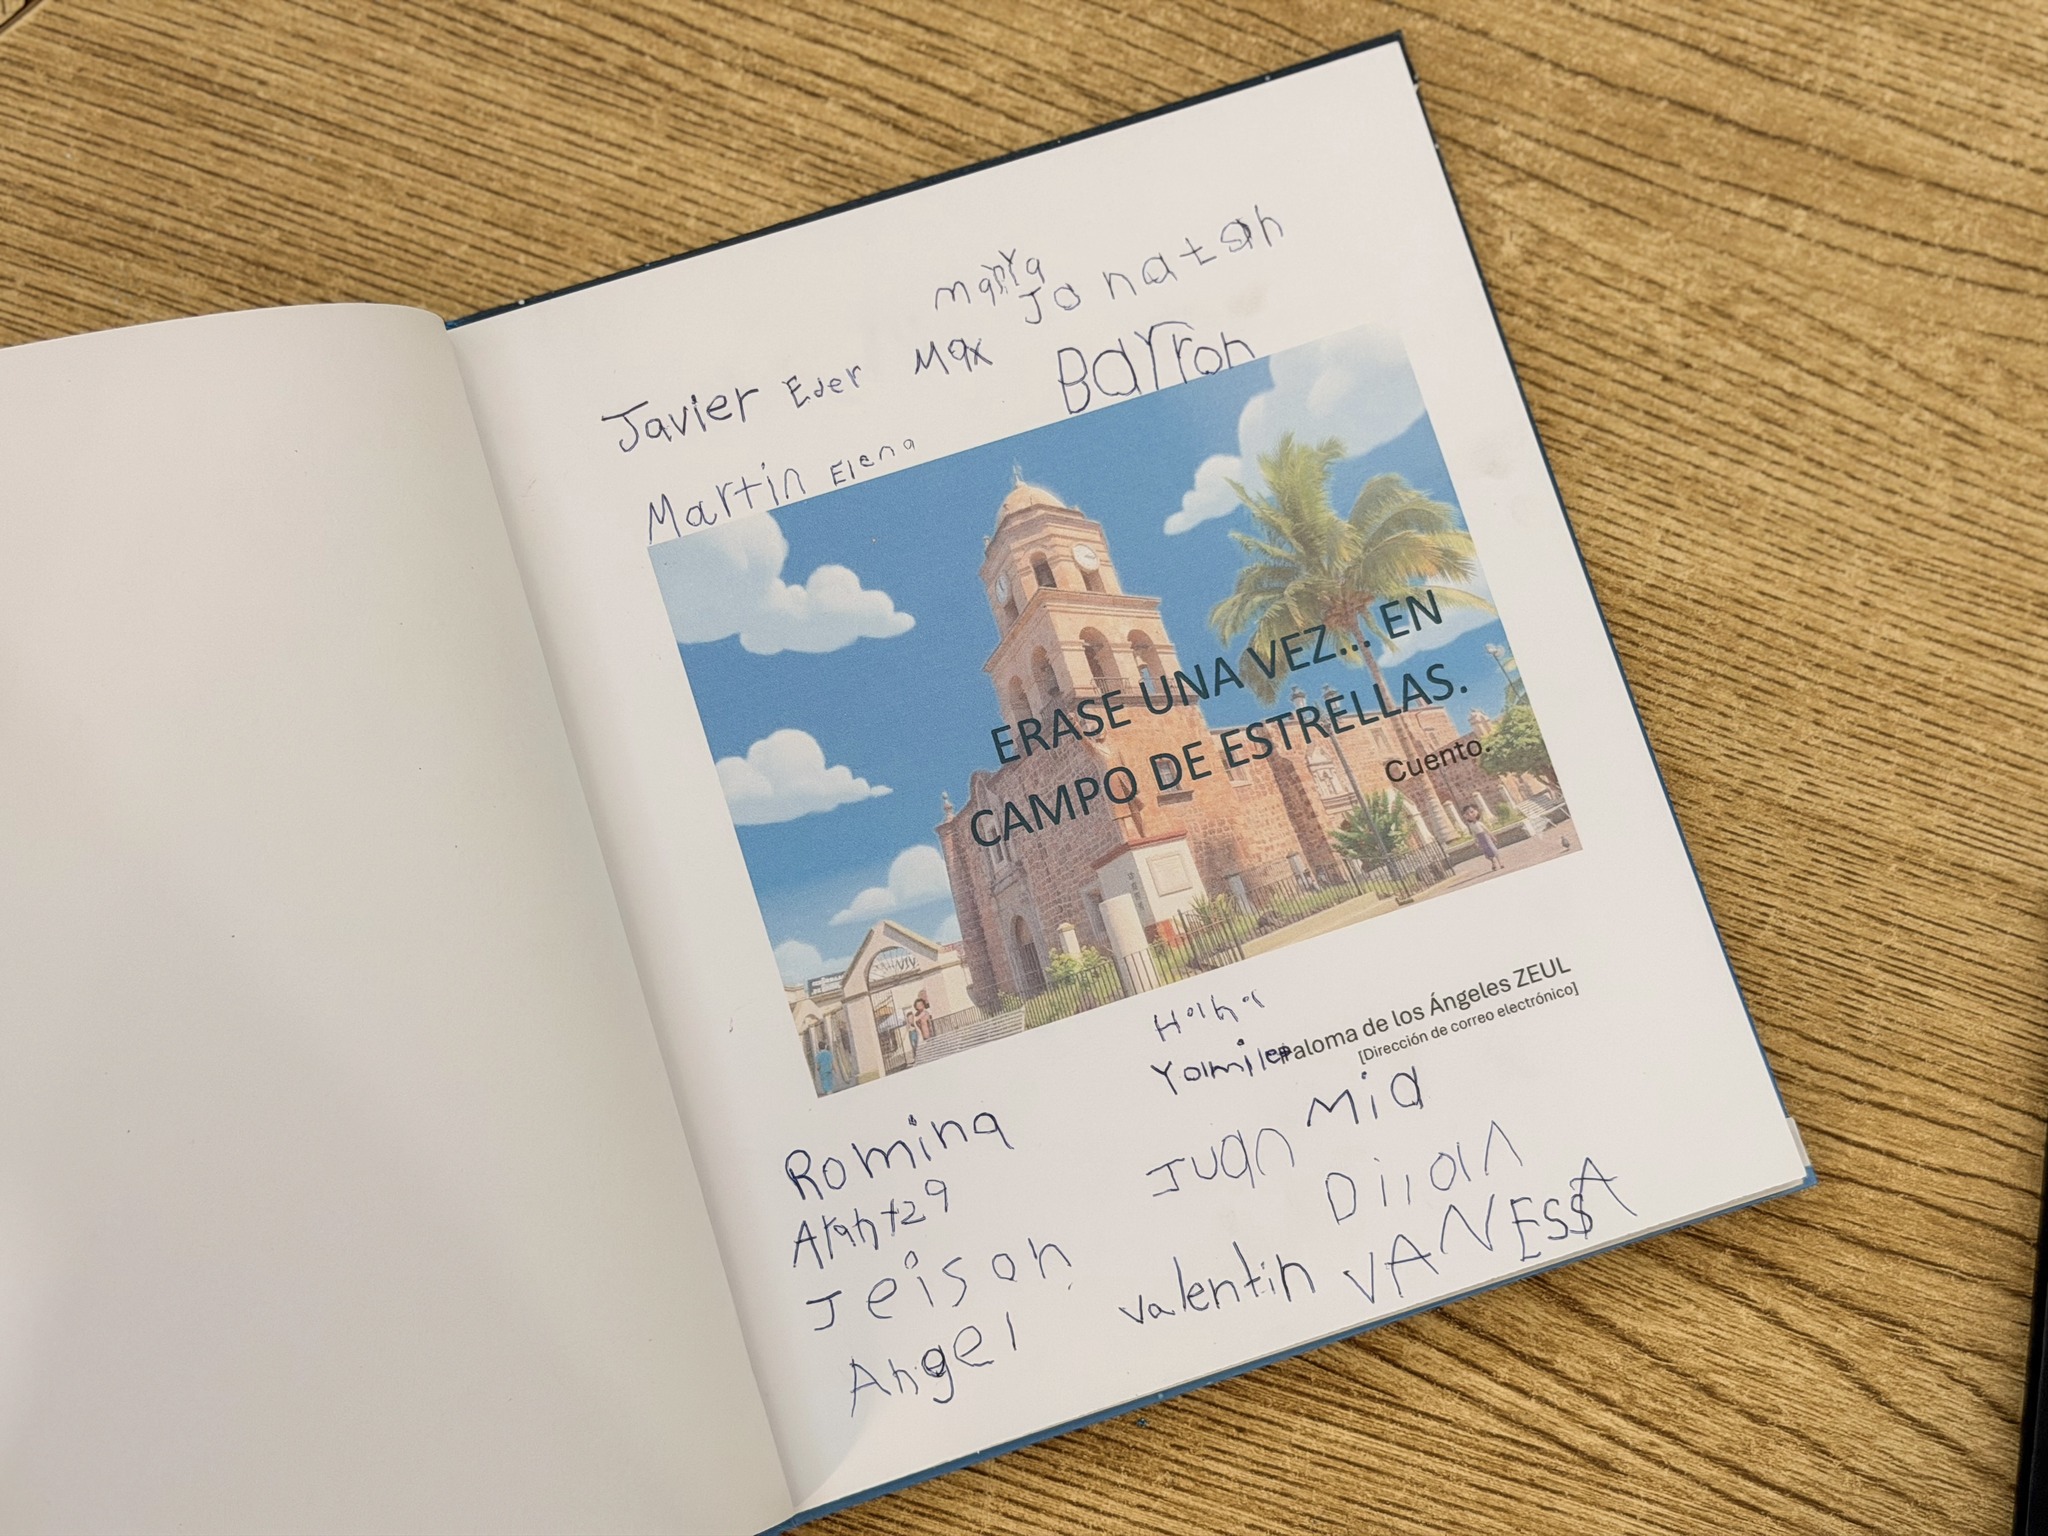 Jonatan
Javier Eder Max Barron
Martin Elena
ERASE UNA VEZ... EN
CAMPO DE ESTRELLAS.
Cuento.
Paloma de los Ángeles ZEUL
[Dirección de correo electrónico]
Romina
Mia
Juan
Jeison
Angel
Valentin VANESSA